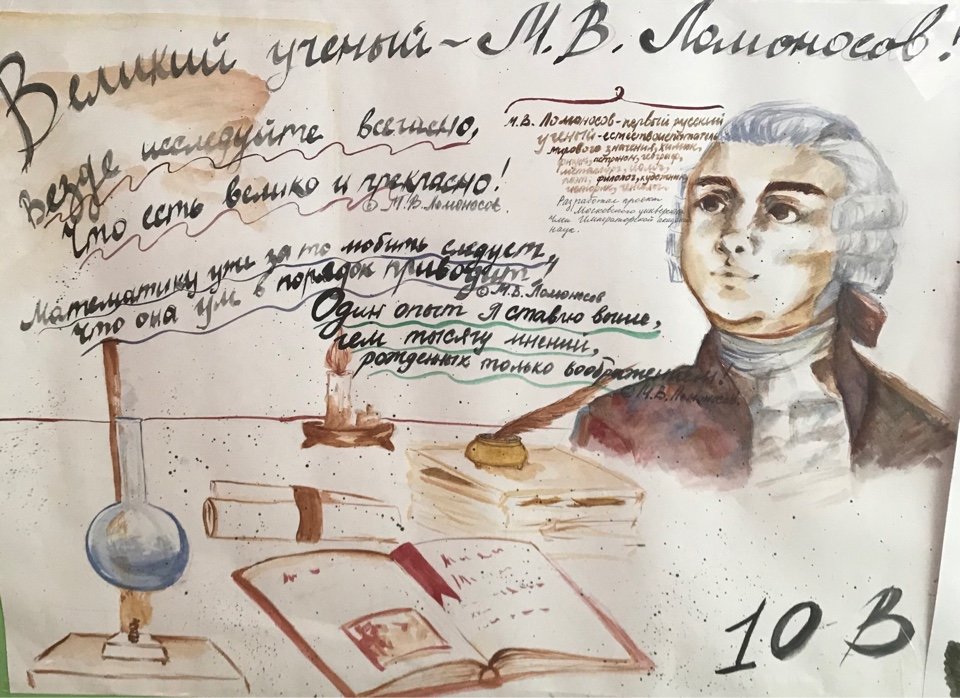 Великий ученый - М.В. Ломоносов!
Везде исследуйте всечасно,
Что есть велико и прекрасно!
© М.В. Ломоносов
Математику уже за то любить следует,
что она ум в порядок приводит!
© М.В. Ломоносов
Один опыт я ставлю выше,
чем тысячу мнений,
рожденных только воображением!
© М.В. Ломоносов
М.В. Ломоносов - первый русский
ученый - естествоиспытатель
мирового значения, химик,
физик, астроном, географ,
металлург, геолог,
поэт, филолог, художник,
историк,
Разработал проект
Московского университета
Член Императорской
наук.
10 В